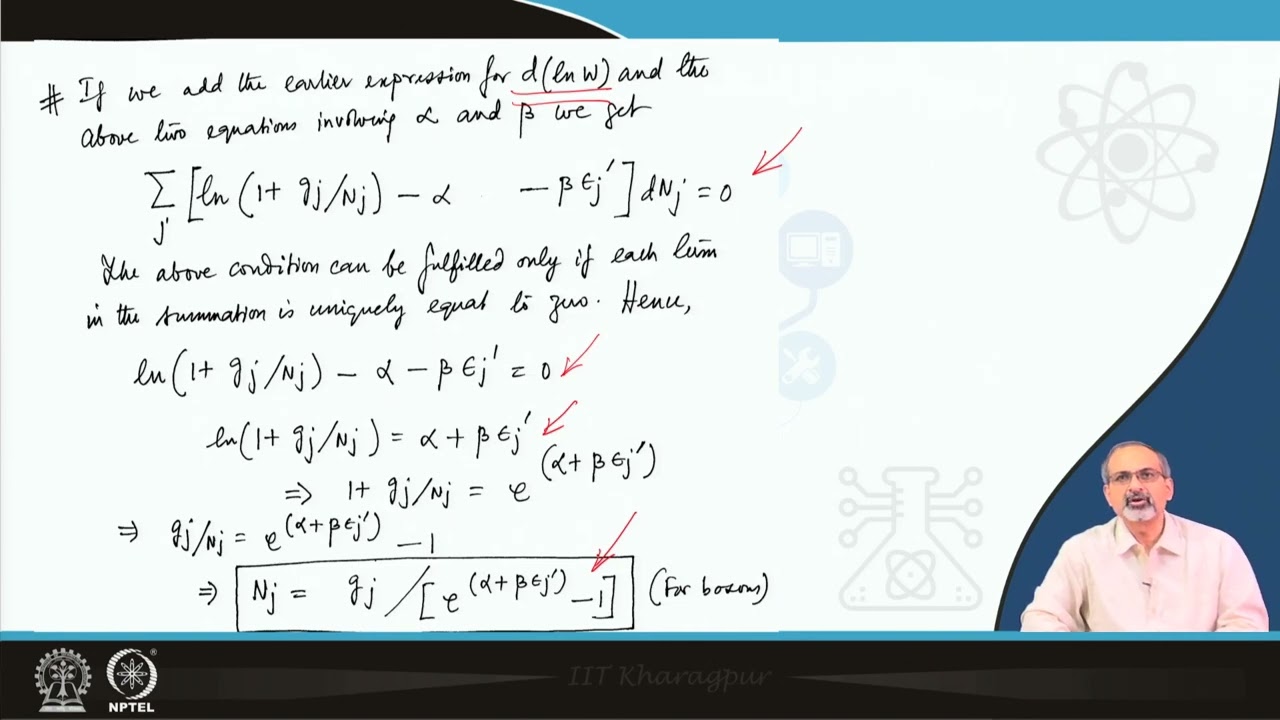 # If we add the earlier expression for d(ln W) and the
above two equations involving α and β we get
∑j [ln (1 + gj/Nj) - α - β ϵj'] dNj = 0
The above condition can be fulfilled only if each term
in the summation is uniquely equal to zero. Hence,
ln(1 + gj/Nj) - α - β ϵj' = 0
ln(1 + gj/Nj) = α + β ϵj'
⇒ 1 + gj/Nj = e^(α + β ϵj')
⇒ gj/Nj = e^(α + β ϵj') - 1
⇒ Nj = gj / [e^(α + β ϵj') - 1] (For bosons)
IIT Kharagpur
NPTEL